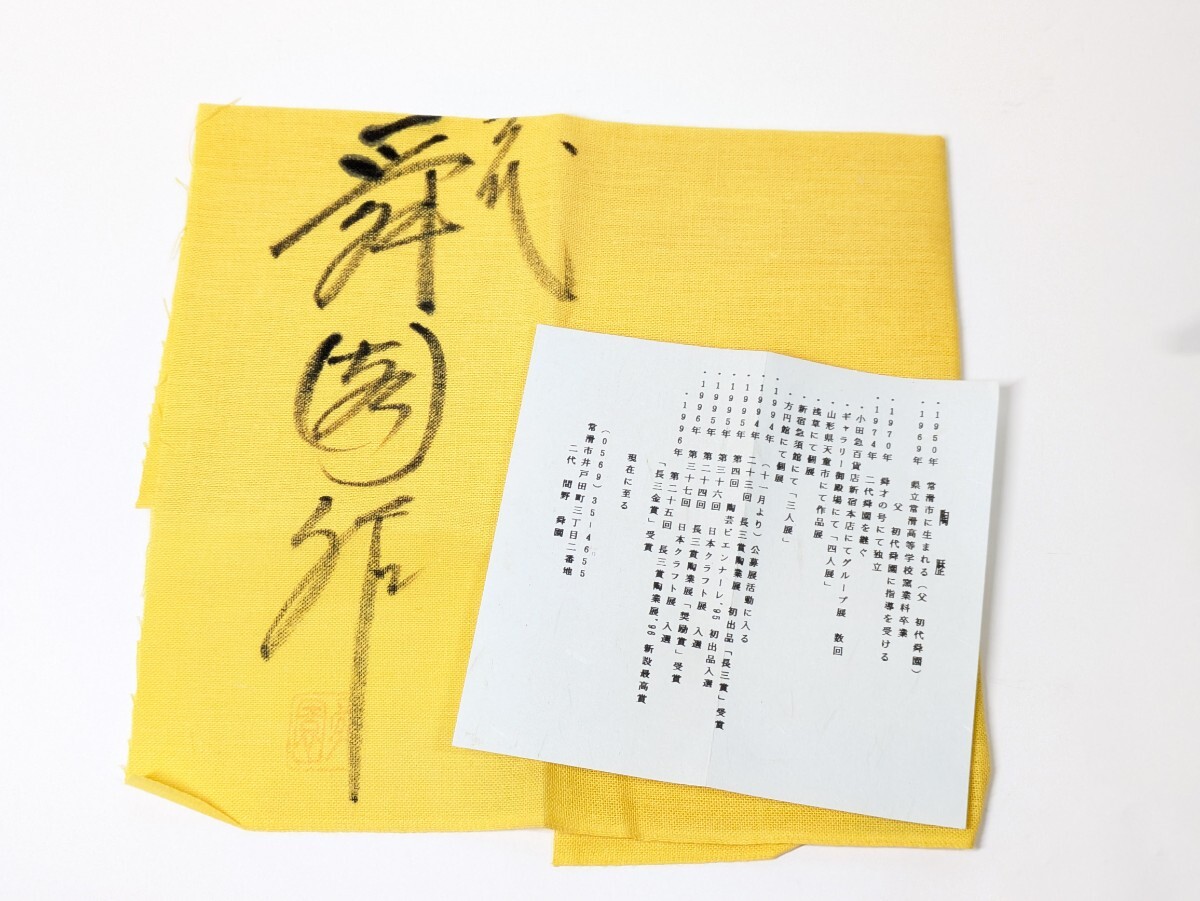 弐
舜園作
陶歴
・1950年 常滑市に生まれる(父 初代舜園)
・1969年 県立常滑高等学校窯業科卒業
父 初代舜園に指導を受ける
・1970年 舜才の号にて独立
・1974年 二代舜園を継ぐ
・小田急百貨店新宿本店にてグループ展 数回
・ギャラリー御殿場にて「四人展」
・山形県天童市にて作品展
・浅草にて個展
・新宿急須館にて「三人展」
・方円館にて個展
・1994年 (十一月より)公募展活動に入る
・1994年 二十三回 長三賞陶業展 初出品「長三賞」受賞
・1995年 第四回 陶芸ビエンナーレ'95 初出品入選
・1995年 第三十六回 日本クラフト展 入選
・1995年 第二十四回 長三賞陶業展「奨励賞」受賞
・1996年 第三十七回 日本クラフト展 入選
・1996年 第二十五回 長三賞陶業展'96 新設最高賞
「長三金賞」受賞
現在に至る
(0569)35-4655
常滑市井戸田町三丁目二番地
二代 間野 舜園